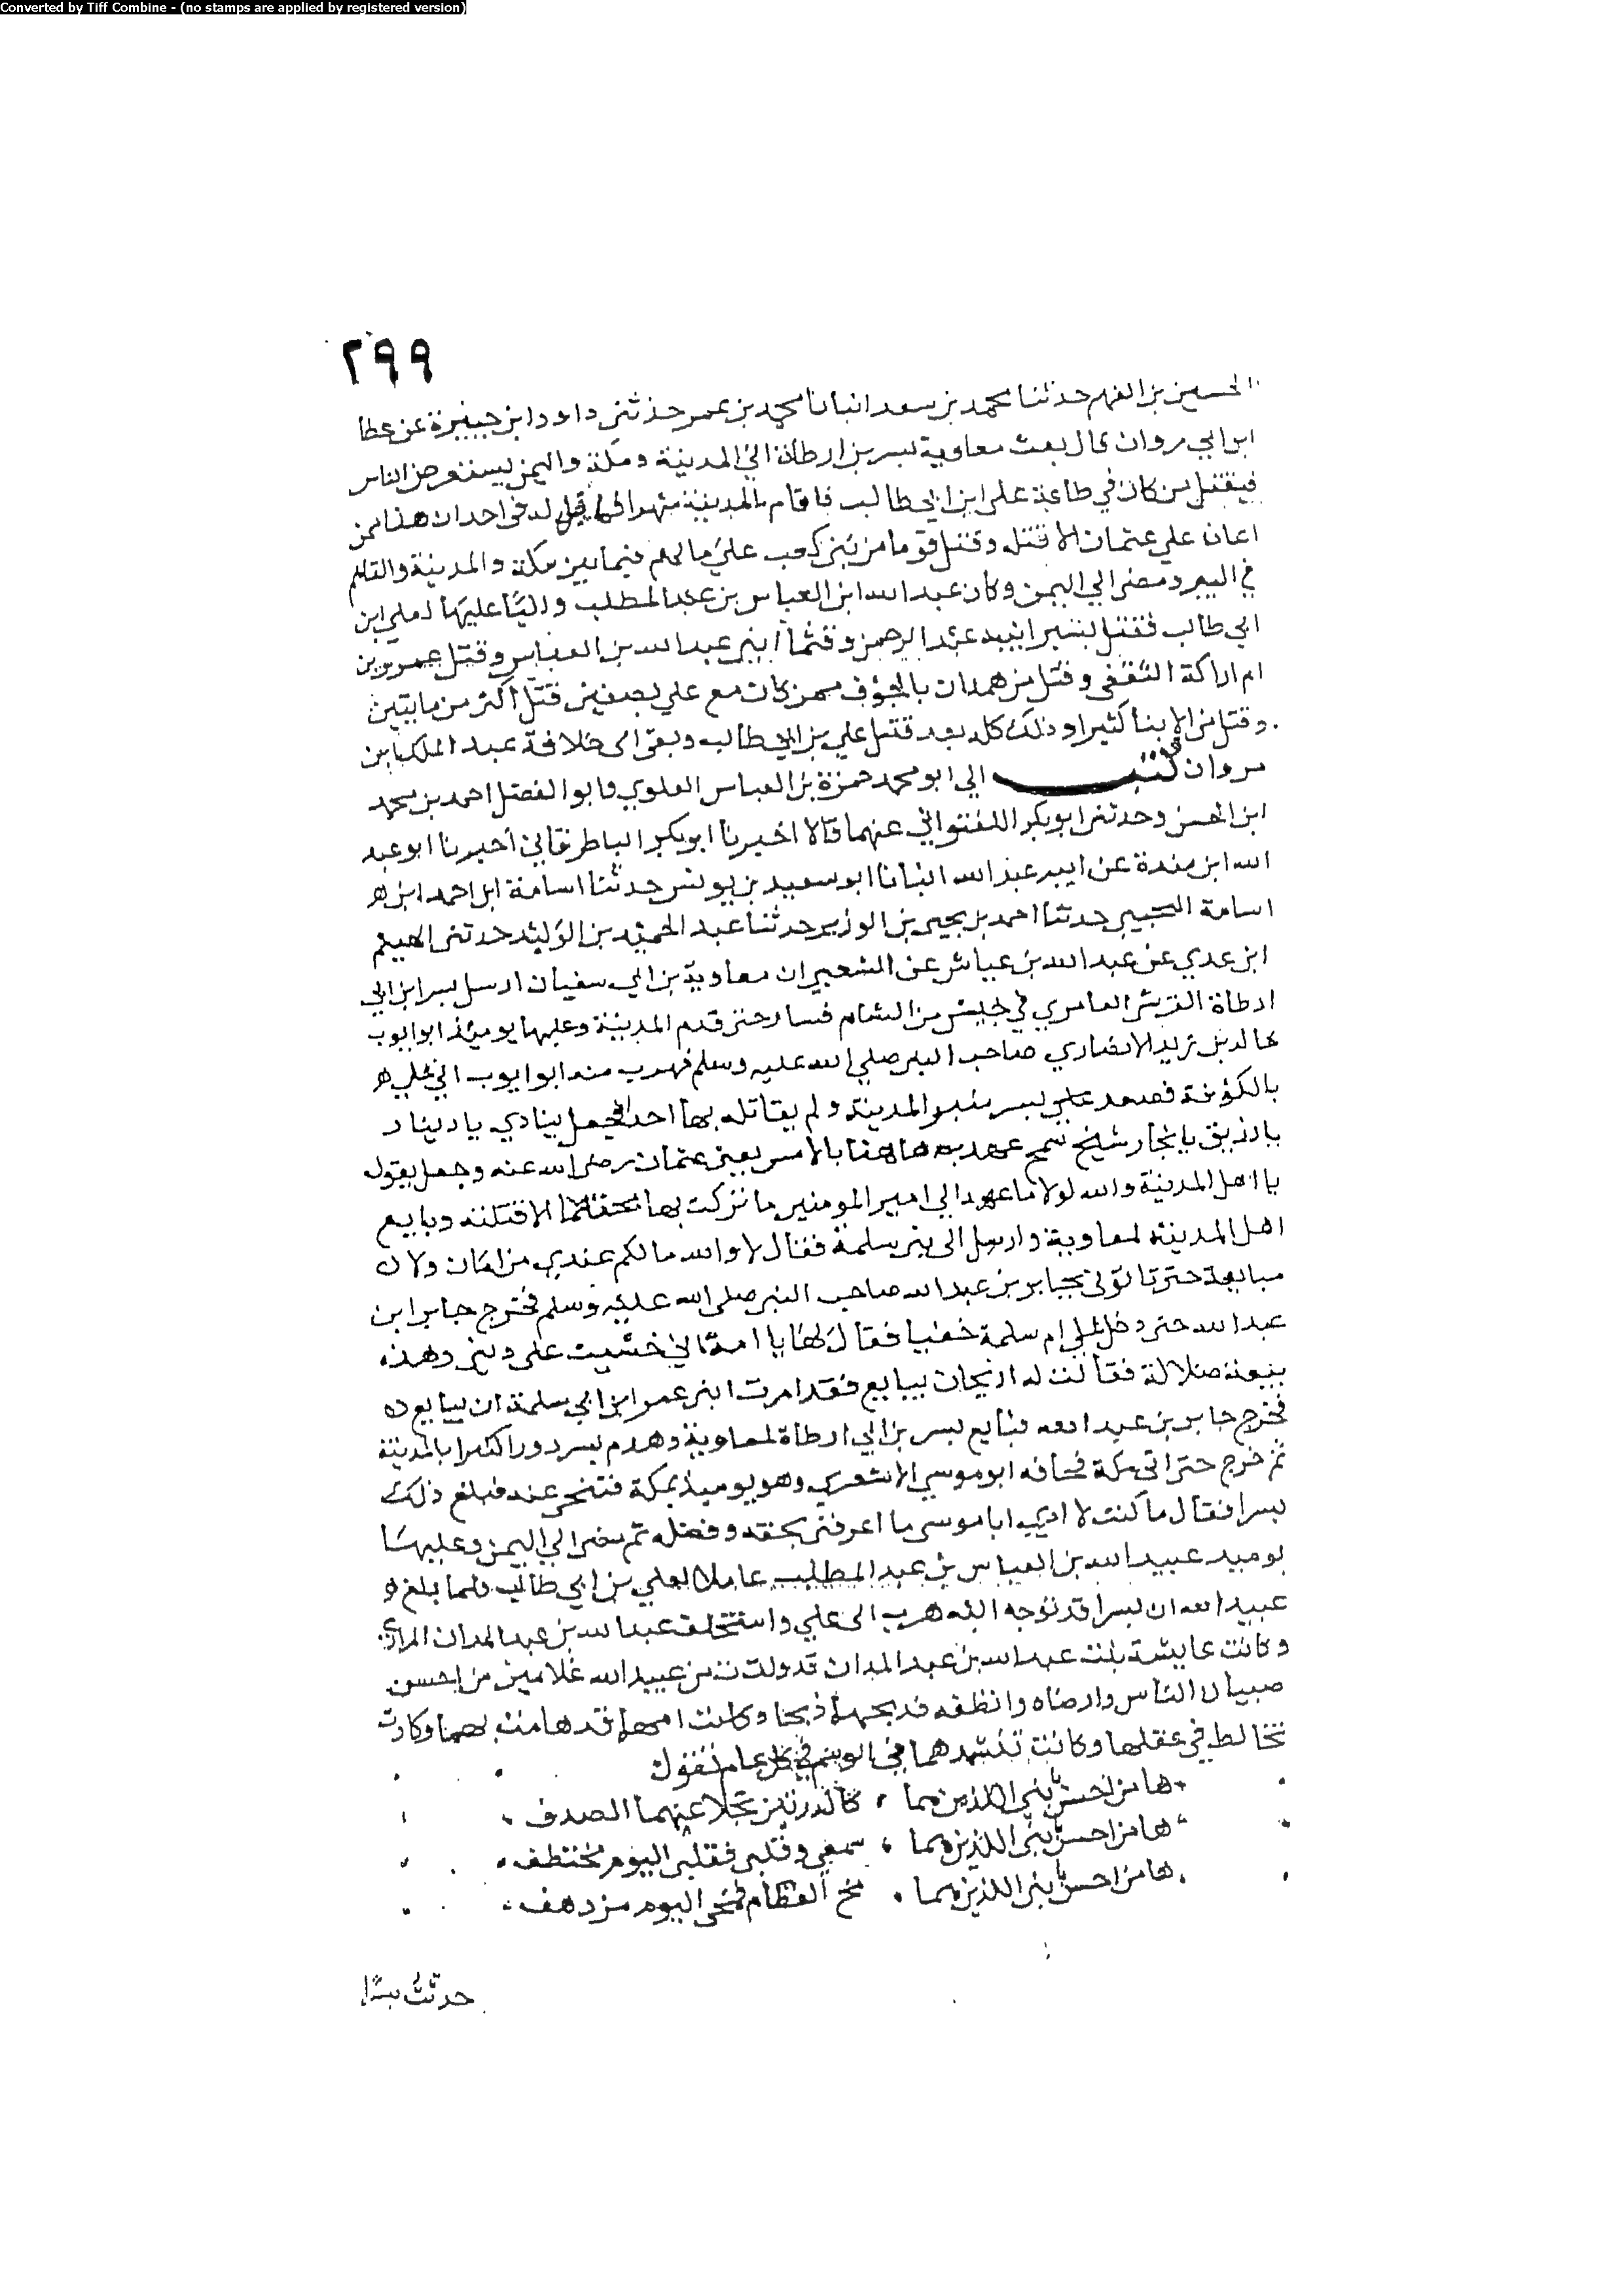 Converted by Tiff Combine - (no stamps are applied by registered version)
٢٩٩
الحسين بن الفهم حدثنا محمد بن سعد انبانا محمد بن عمر حدثني داود ابن جبيرة عن عطا
ابن ابي مروان قال بعث معاوية بسر بن ارطاة الي المدينة ومكة واليمن يستعرض الناس
فيقتل من كان في طاعة علي ابن ابي طالب فاقام بالمدينة شهرا فما قيل له في احدان هذا ممن
اعان علي عثمان الا قتله وقتل قوما من بني كعب علي مالهم فيما بين مكة والمدينة والقاهم
في البير ومضي الي اليمن وكان عبد الله ابن العباس بن عبد المطلب واليا عليها لعلي ابن
ابي طالب فقتل بسر ابنيه عبد الرحمن وقثما ابني عبد الله بن العباس وقتل عمرو بن
ام اراكة الثقفي وقتل من همدان بالجوف ممن كان مع علي بصفين قتل اكثر من مايتين
وقتل من الابنا كثيرا وذلك كله بعد قتل علي بن ابي طالب وبقي الي خلافة عبد الملك ابن
مروان كتب الي ابو محمد حمزة بن العباس العلوي وابو الفضل احمد بن محمد
ابن الحسن وحدثني ابو بكر اللفتواني عنهما قالا اخبرنا ابو بكر الباطرقاني اخبرنا ابو عبد
الله ابن مندة عن ابيه عبد الله انبانا ابو سعيد بن يونس حدثنا اسامة ابن احمد ابن
اسامة التجيبي حدثنا احمد بن يحيي بن الوزير حدثنا عبد الحميد بن الوليد حدثني الهيثم
ابن عدي عن عبد الله بن عياش عن الشعبي ان معاوية بن ابي سفيان ارسل بسر ابن ابي
ارطاة القرشي العامري في جيش من الشام فسار حتي قدم المدينة وعليها يومئذ ابو ايوب
خالد بن زيد الانصاري صاحب النبي صلي الله عليه وسلم فهرب منه ابو ايوب الي علي
بالكوفة فصعد علي بسر منبر المدينة ولم يقاتله بها احد فجعل ينادي يا دينار
يا رزيق يا نجار شيخ سمح عهدته هاهنا بالامس يعني عثمان رضي الله عنه وجعل يقول
يا اهل المدينة والله لولا ما عهد الي امير المومنين ما تركت بها محتلما الا قتلته وبايع
اهل المدينة لمعاوية وارسل الي بني سلمة فقال لا والله ما لكم عندي من امان ولا
مبايعة حتي تاتوني بجابر بن عبد الله صاحب النبي صلي الله عليه وسلم فخرج جابر ابن
عبد الله حتي دخل علي ام سلمة خفيا فقال لها يا امة اني خشيت علي ديني وهذه
بيعة ضلالة فقالت له اري ان تبايع فقد امرت ابني عمر ابن ابي سلمة ان يبايع
فخرج جابر بن عبد الله فبايع بسر بن ابي ارطاة لمعاوية وهدم بسر دورا كثيرا بالمدينة
ثم خرج حتي اتي مكة فخافه ابو موسي الاشعري وهو يوميذ بمكة فتنحي عنه فبلغ ذلك
بسرا فقال ما كنت لاوذي ابا موسي ما اعرفني بحقه وفضله ثم مضي الي اليمن وعليها
يوميذ عبيد الله بن العباس بن عبد المطلب عاملا لعلي بن ابي طالب فلما بلغ
عبيد الله ان بسرا قد توجه اليه هرب الي علي واستخلف عبد الله بن عبد المدان المرادي
وكانت عايشة بنت عبد الله بن عبد المدان قد ولدت من عبيد الله غلامين من احسن
صبيان الناس وارضاه وانظفه فذبحهما ذبحا وكانت امهما قد هامت بهما وكادت
تخالط في عقلها وكانت تنشدهما في الموسم في كل عام تقول
ها من احس بنيي اللذين هما كالدرتين تجلا عنهما الصدف
ها من احس بنيي اللذين هما سمعي وقلبي فقلبي اليوم مختطف
ها من احس بنيي اللذين هما مخ العظام فمخي اليوم مزدهف
حدثت بسرا